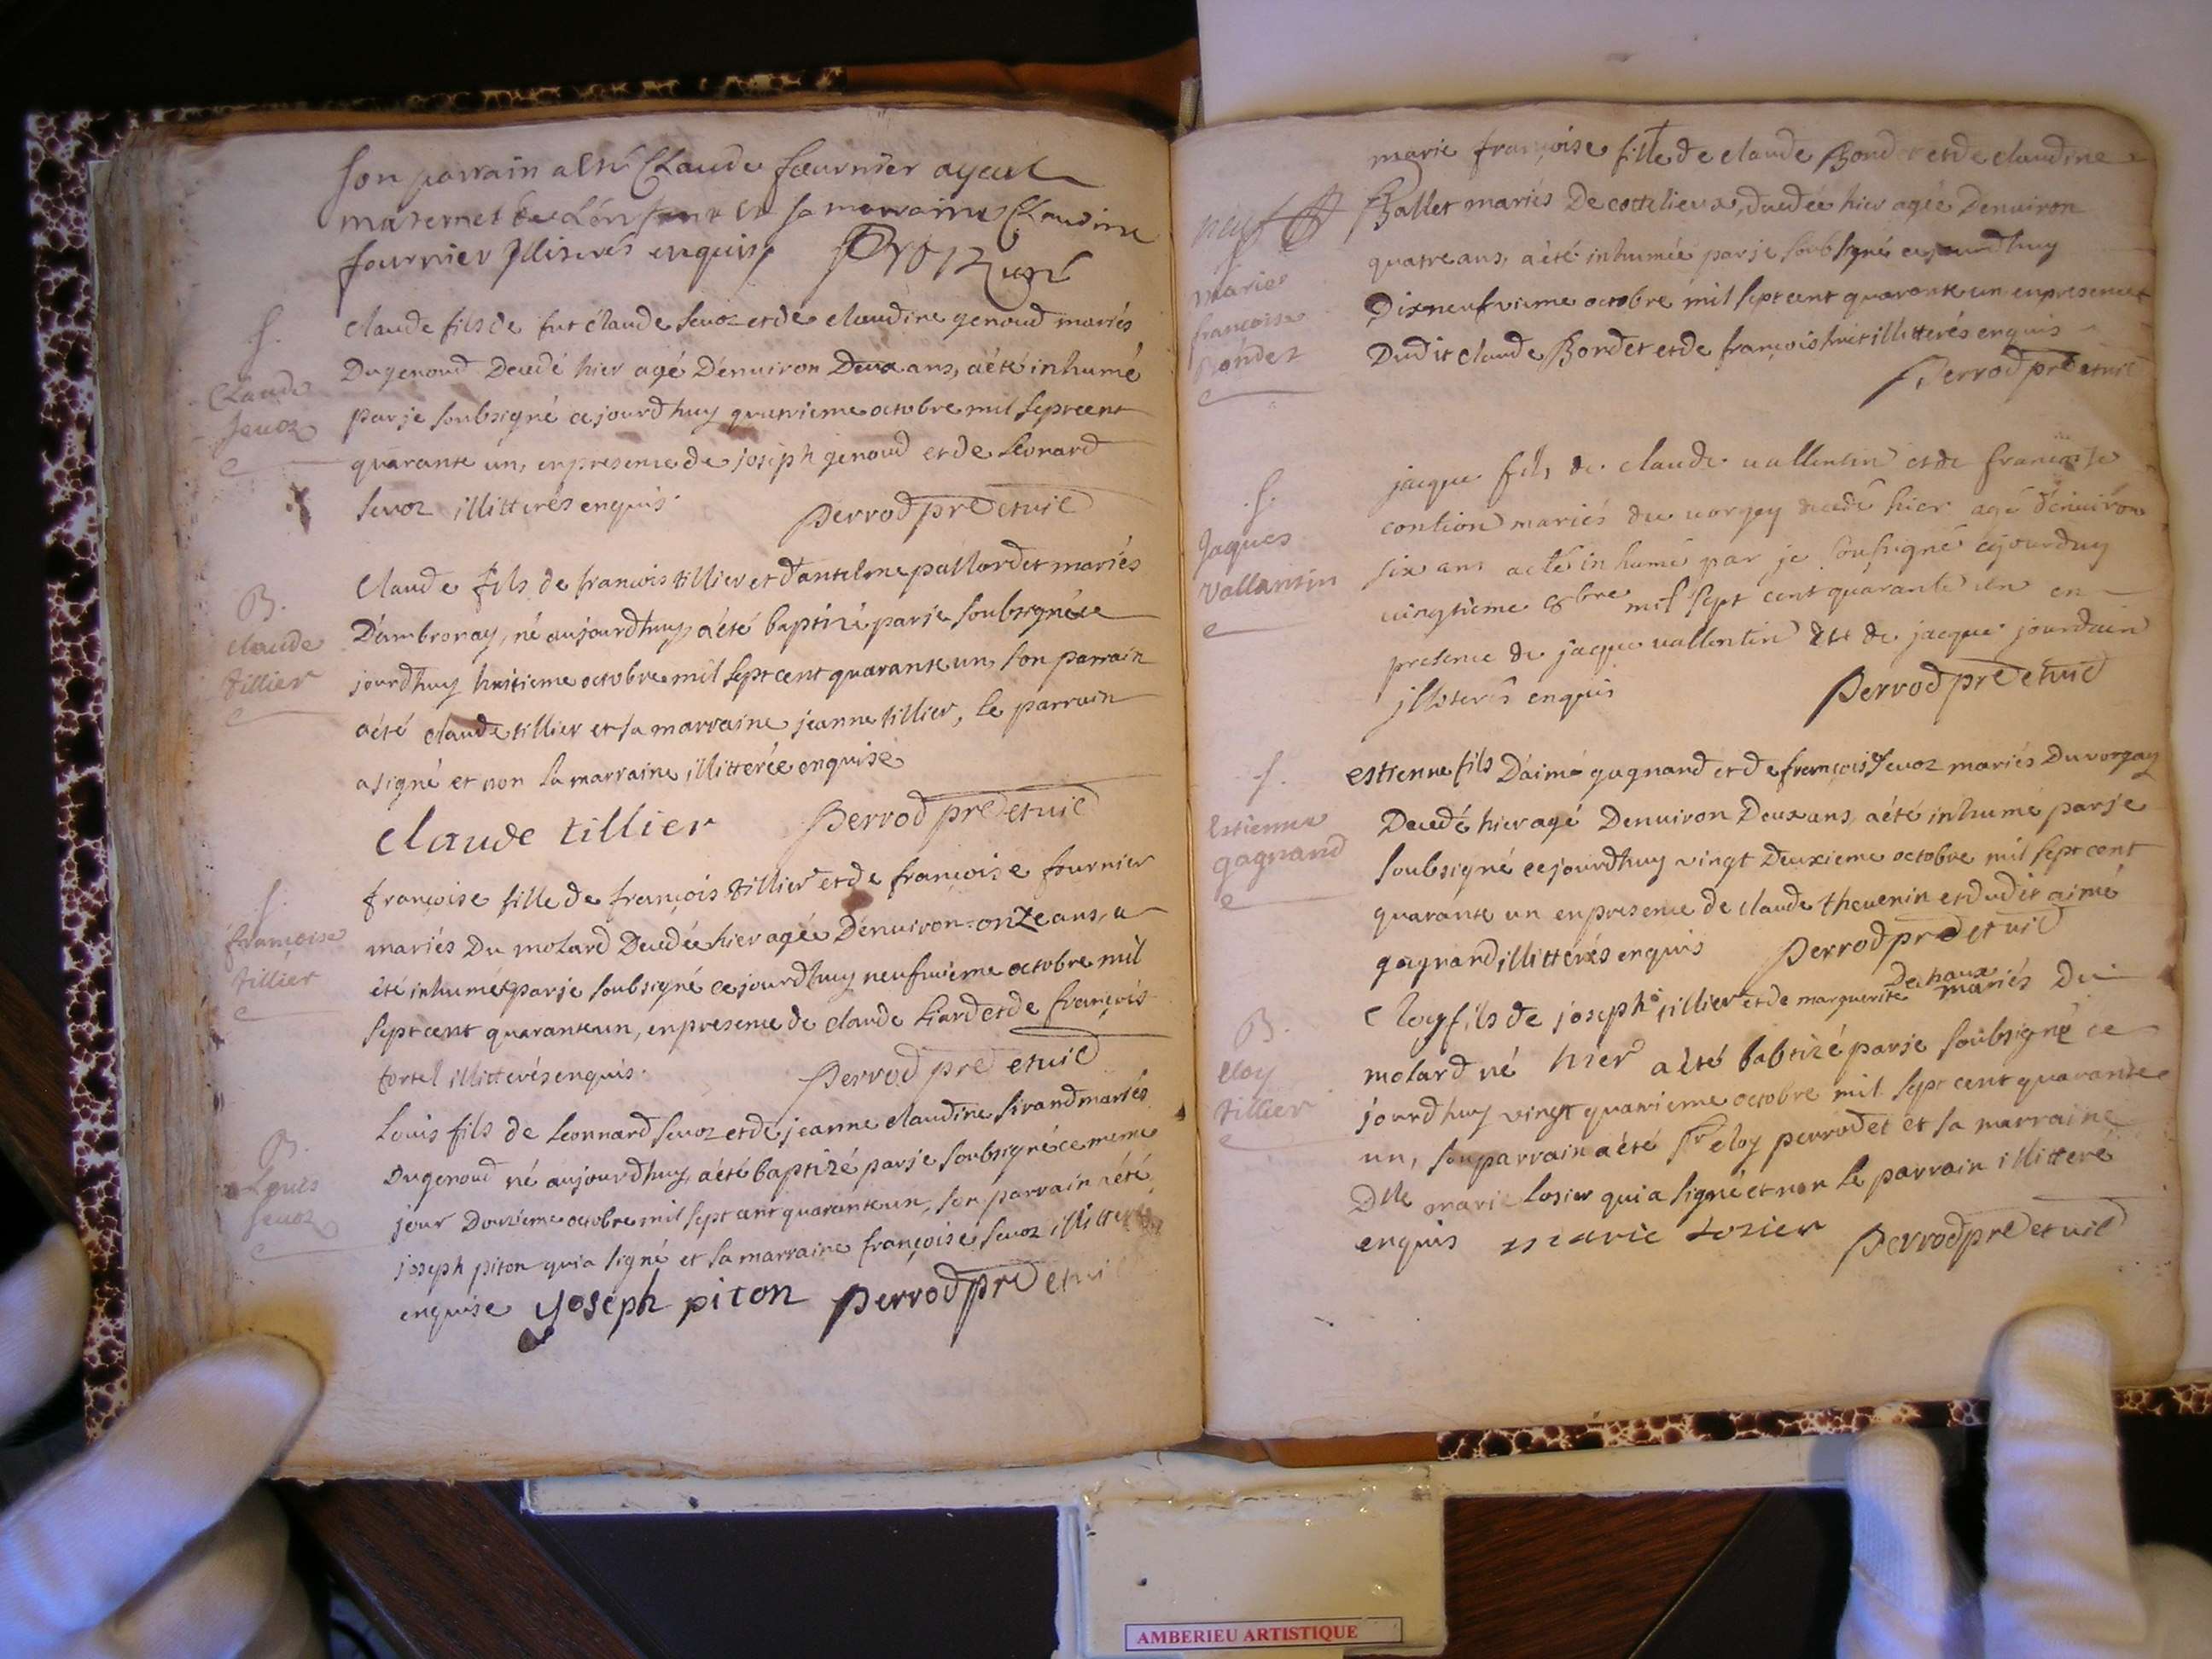 son parrain a esté Claude fournier ayeul
maternel de L'enfant et sa marraine Claudine
fournier Illiterés enquis
S.
Claude
Sevoz
claude fils de fut claude Sevoz et de claudine genoud mariés
Dugenoud Decedé hier agé Denuiron Deux ans, a été inhumé
par je soubsigné cejourdhuy quatrieme octobre mil sept cent
quarante un, en presence de joseph genoud et de Leonard
Sevoz illitterés enquis.
perrod pre et vic
B.
claude
tillier
Claude fils de francois tillier et d'antelme pallordet mariés
D'ambronay, né aujourdhuy, a été baptizé par je soubsigné ce
jourdhuy huitieme octobre mil sept cent quarante un, son parrain
a été claude tillier et sa marraine jeanne tillier, le parrain
a signé et non la marraine, illitterée enquise
claude tillier perrod pre et vic
S.
francoise
tillier
francoise fille de francois tillier et de francoise fournier
mariés Du molard Decedée hier agée Denuiron onze ans, a
été inhumée par je soubsigné ce jourdhuy neufuieme octobre mil
sept cent quarante un, en presence de claude Liard et de francois
tortel illitterés enquis.
perrod pre et vic
B.
Louis
Sevoz
Louis fils de Leonnard Sevoz et de jeanne claudine Sirand mariés
Dugenoud né aujourdhuy, a été baptizé par je soubsigné ce meme
jour Douzieme octobre mil sept cent quarante un, son parrain a été
joseph piton qui a signé et sa marraine françoise Sevoz illitterée
enquise yoseph piton perrod pre et vic
marie
francoise
Bondet
marie françoise fille de claude Bondet et de claudine
Ballet mariés De cottelieux, decedée hier agée Denuiron
quatre ans, a été inhumée par je soubsigné cejourdhuy
Dixneufvieme octobre mil sept cent quarante un en presence
Dudit claude Bondet et de françois huit illitterés enquis
perrod pre et vic
S.
Jaques
Vallantin
jacque fils de claude vallentin et de francoise
contion mariés du vorgey decedé hier agé d'enuiron
six ans a eté inhumé par je sousigné cejourduy
vingtieme 8bre mil sept cent quarante un en
presence de jacque vallentin et de jacque jourdain
illiterés enquis
perrod pre et vic
S.
Estienne
gagnand
estienne fils D'aimé gagnand et de françoise Sevoz mariés Du vorgay
Decedé hier agé Denuiron Deux ans, a été inhumé par je
soubsigné cejourdhuy vingt Deuxieme octobre mil sept cent
quarante un en presence de claude thevenin et dudit aimé
gagnand illitterés enquis perrod pre et vic
B.
Eloy
tillier
Eloy fils de joseph tillier et de marguerite Dehaux mariés Du
molard né hier a été babtizé par je soubsigné ce
jourdhuy vingt quatrieme octobre mil sept cent quarante
un, son parrain a été Sr eloy perrodet et sa marraine
Dlle marie Losier qui a signé et non le parrain illitteré
enquis marie Losier perrod pre et vic
AMBERIEU ARTISTIQUE